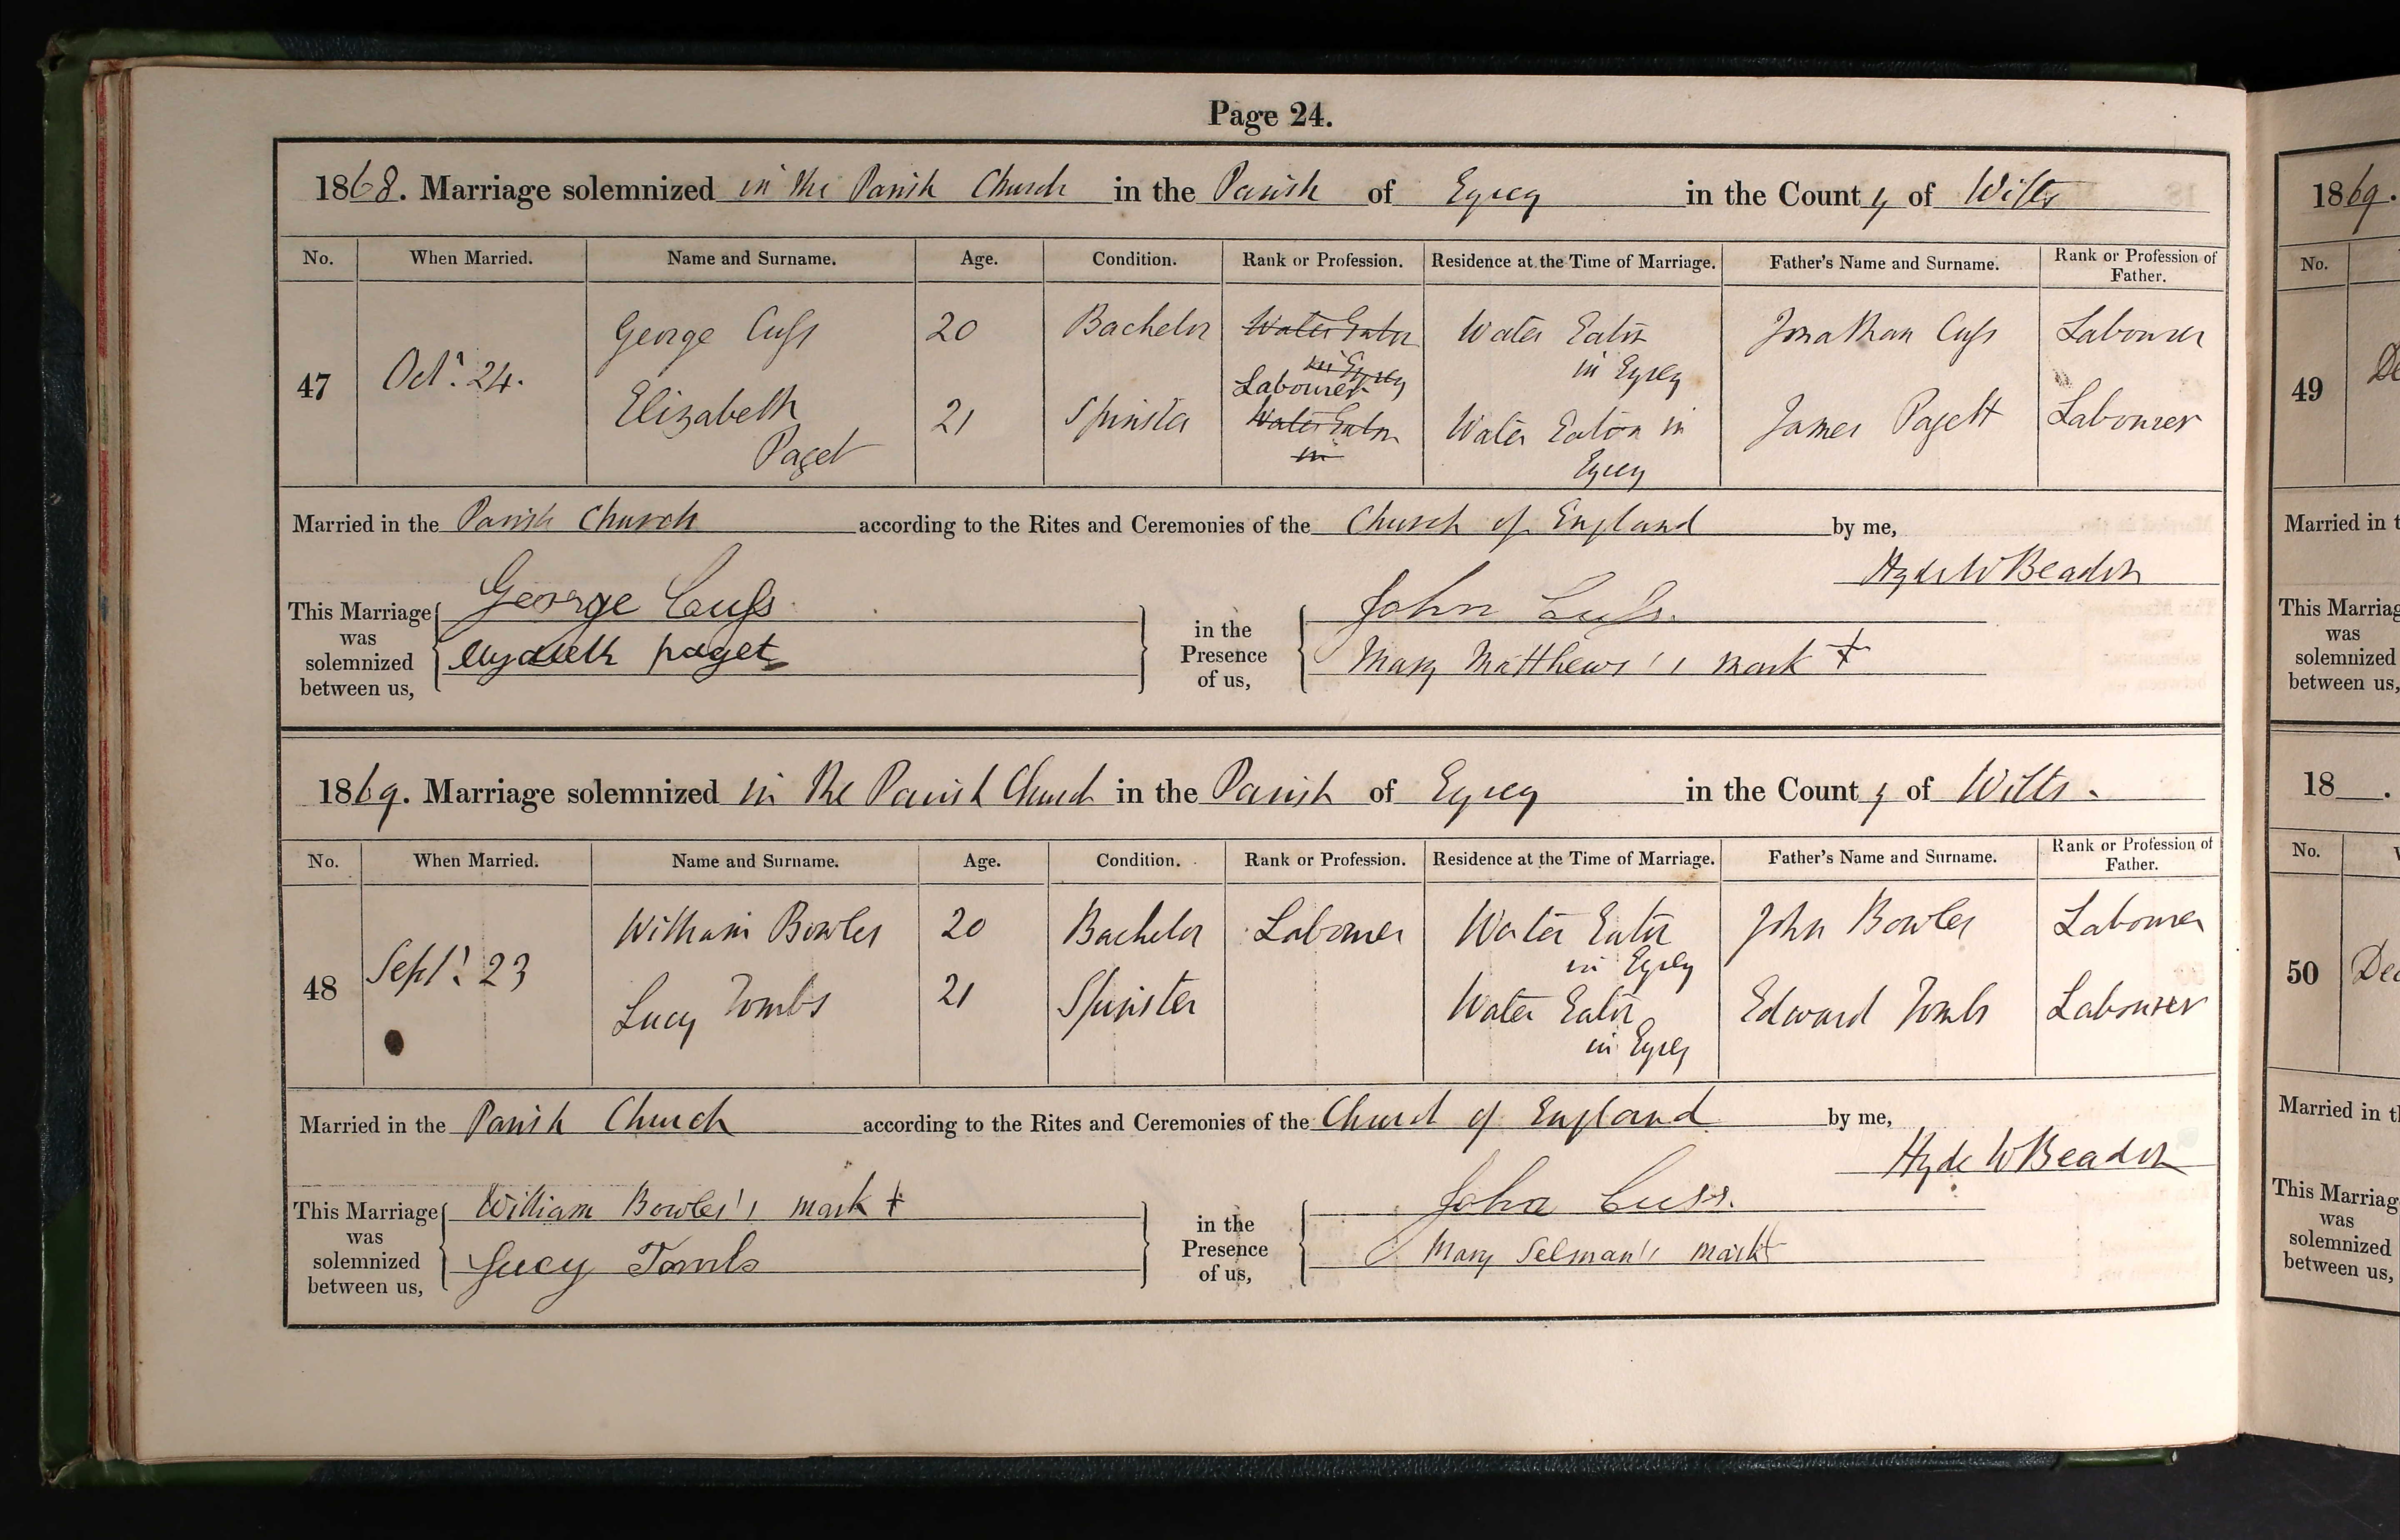 Page 24.
1868. Marriage solemnized in the Parish Church in the Parish of Eysey in the County of Wilts
No. When Married. Name and Surname. Age. Condition. Rank or Profession. Residence at the Time of Marriage. Father's Name and Surname. Rank or Profession of Father.
47 Octr. 24. George Cuss 20 Bachelor Water Eaton in Eysey Labourer Water Eaton in Eysey Jonathan Cuss Labourer
Elizabeth Paget 21 Spinster Water Eaton in Water Eaton in Eysey James Pagett Labourer
Married in the Parish Church according to the Rites and Ceremonies of the Church of England by me,
Hyde W Beadon
This Marriage was solemnized between us, George Cuss
Elyzabeth paget
in the Presence of us, John Cuss.
Mary Matthews's mark +
1869. Marriage solemnized in the Parish Church in the Parish of Eysey in the County of Wilts.
No. When Married. Name and Surname. Age. Condition. Rank or Profession. Residence at the Time of Marriage. Father's Name and Surname. Rank or Profession of Father.
48 Sept. 23 William Bowles 20 Bachelor Labourer Water Eaton in Eysey John Bowles Labourer
Lucy Tombs 21 Spinster Water Eaton in Eysey Edward Tombs Labourer
Married in the Parish Church according to the Rites and Ceremonies of the Church of England by me,
Hyde W Beadon
This Marriage was solemnized between us, William Bowles's mark +
Lucy Tombs
in the Presence of us, John Cuss.
Mary Selman's mark +
1869.
No.
49 De
Married in t
This Marriag
was
solemnized
between us,
18 .
No.
50 Dec
Married in t
This Marriag
was
solemnized
between us,